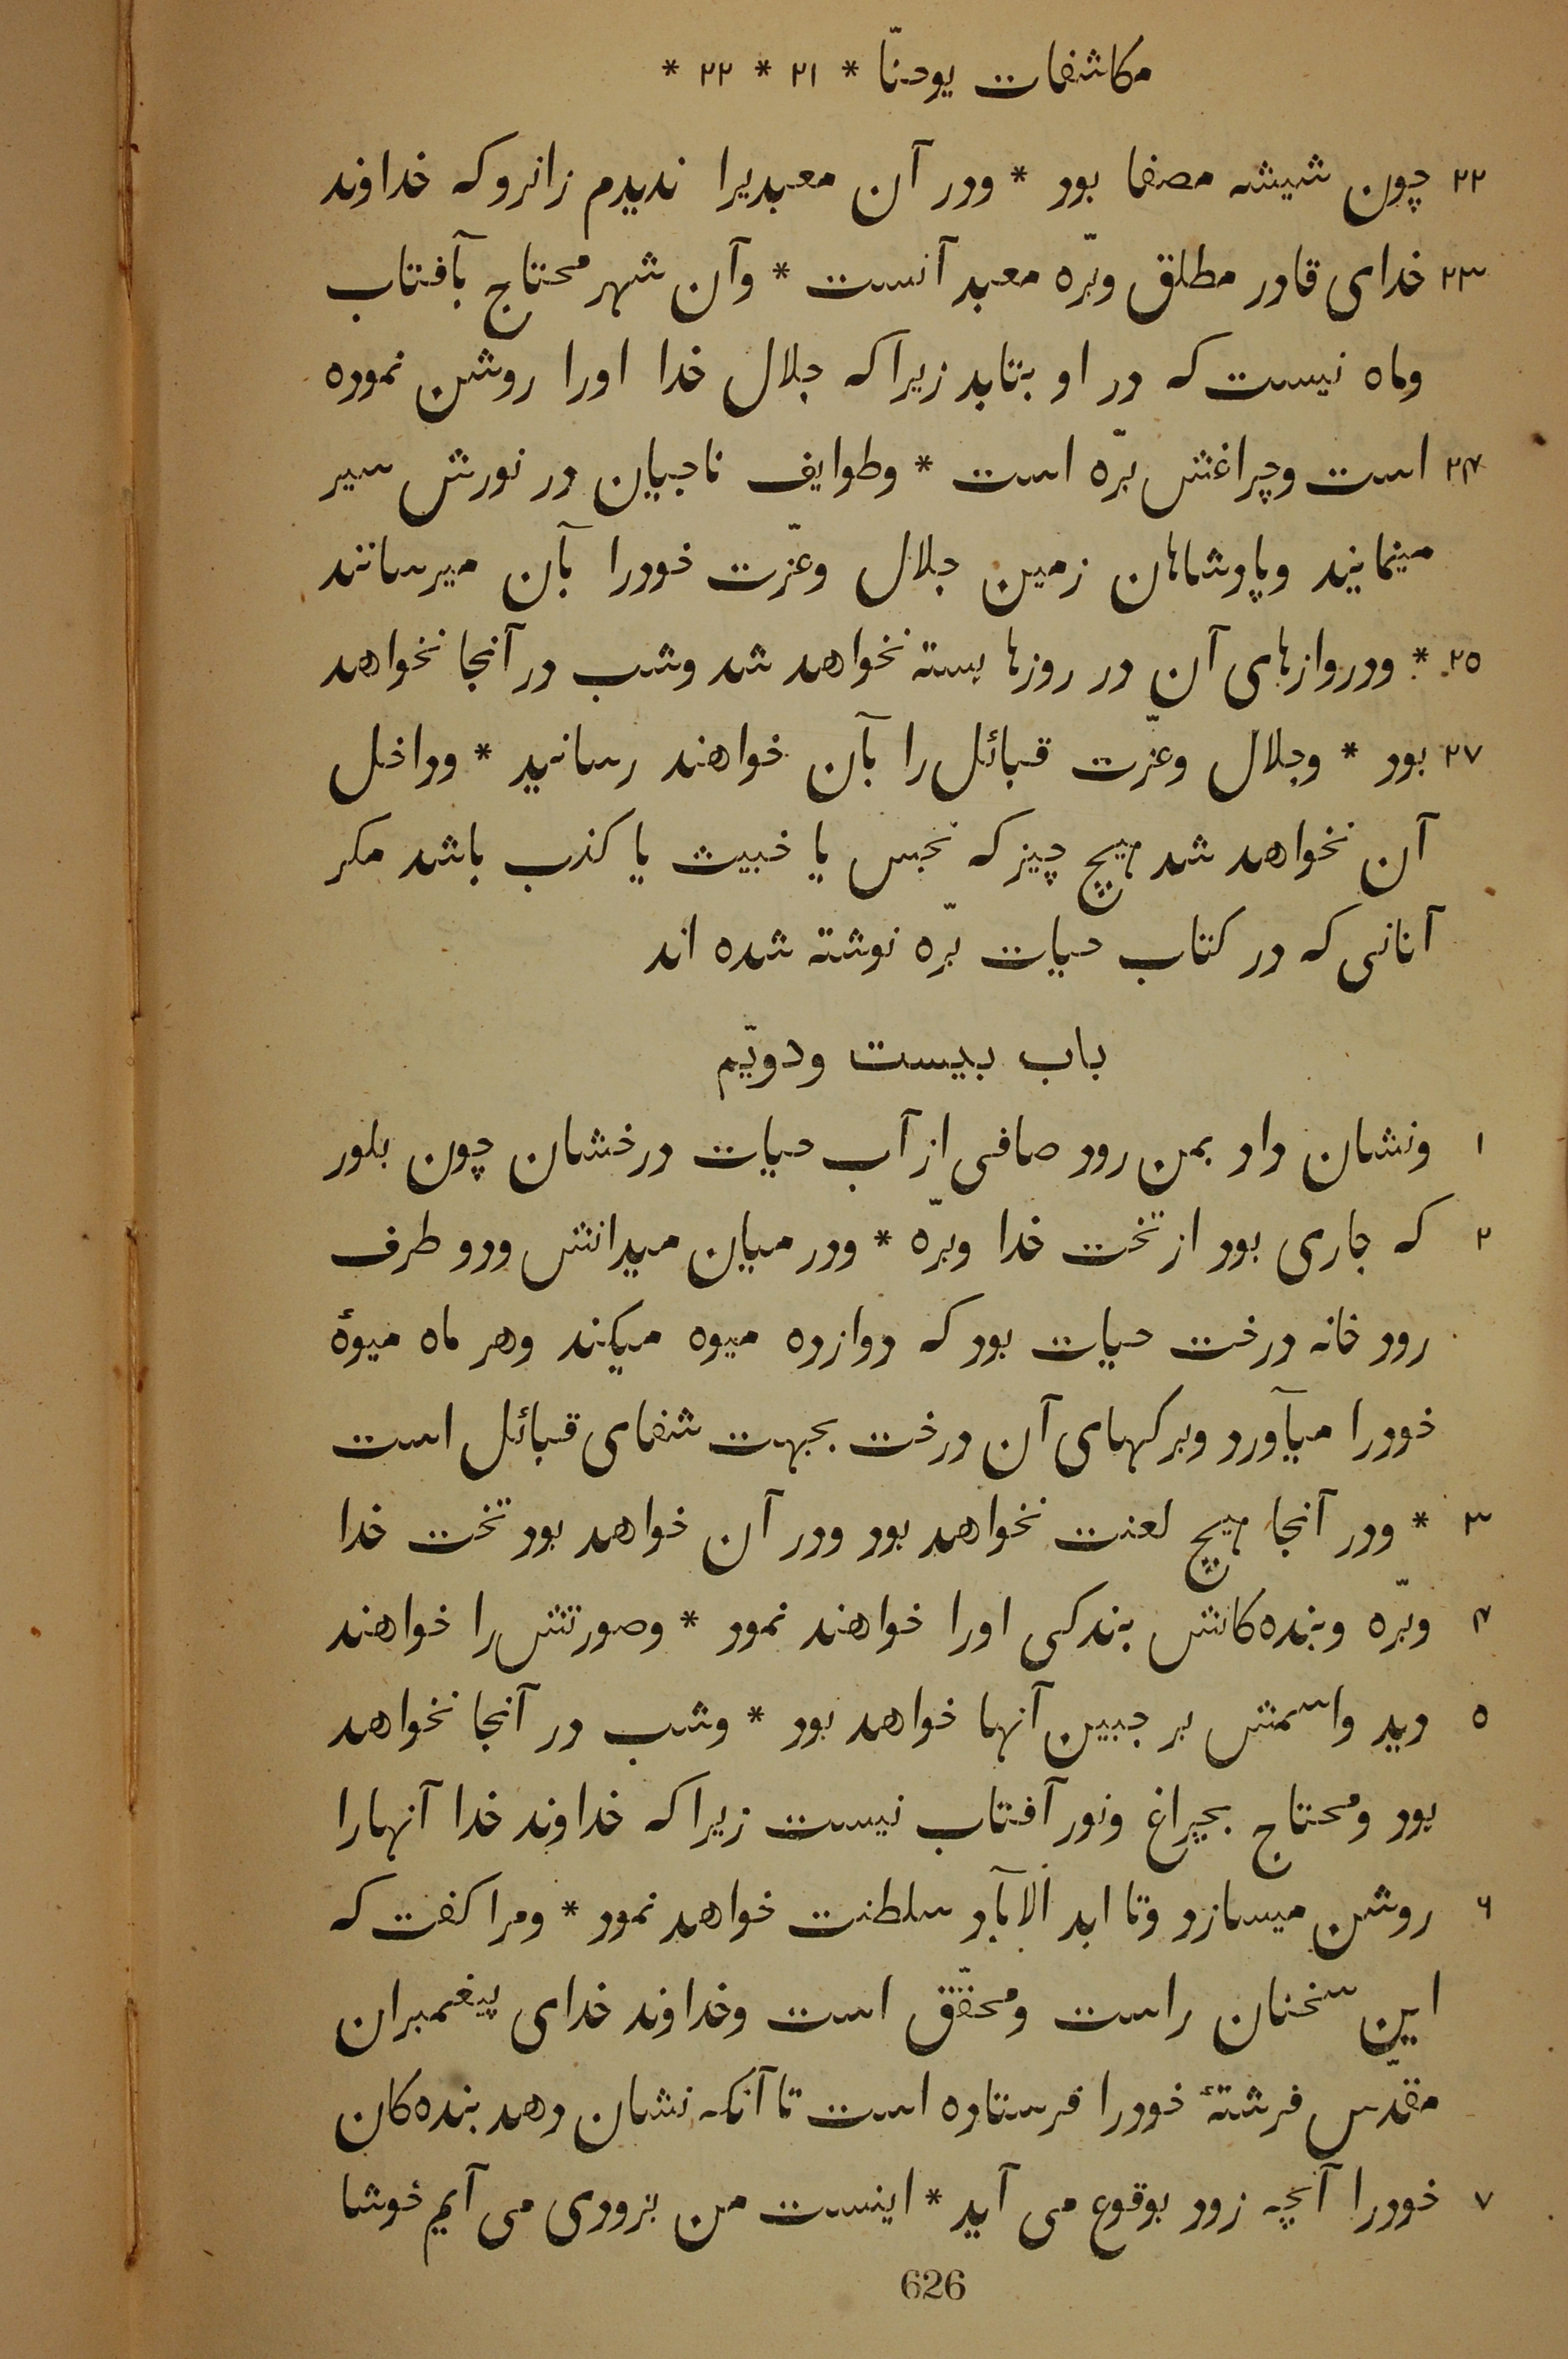 مکاشفات یوحنّا * ۲۱ * ۲۲ *
۲۲ چون شیشه مصفا بود * ودر آن معبدیرا ندیدم زانرو که خداوند
۲۳ خدای قادر مطلق وبرّه معبد آنست * وآن شهر محتاج بآفتاب
وماه نیست که در او بتابد زیرا که جلال خدا اورا روشن نموده
۲۴ است وچراغش برّه است * وطوایف ناجیان در نورش سیر
مینمایند وپادشاهان زمین جلال وعزّت خودرا بآن میرسانند
۲۵ * ودروازهای آن در روزها بسته نخواهد شد وشب در آنجا نخواهد
۲۷ بود * وجلال وعزّت قبائل را بآن خواهند رسانید * وداخل
آن نخواهد شد هیچ چیز که نجس یا خبیث یا کذب باشد مکر
آنانی که در کتاب حیات برّه نوشته شده اند
باب بیست ودویّم
۱ ونشان داد بمن رود صافی از آب حیات درخشان چون بلور
۲ که جاری بود از تخت خدا وبرّه * ودر میان میدانش ودو طرف
رود خانه درخت حیات بود که دوازده میوه میکند وهر ماه میوهٔ
خودرا میآورد وبرکهای آن درخت بجهت شفای قبائل است
۳ * ودر آنجا هیچ لعنت نخواهد بود ودر آن خواهد بود تخت خدا
۴ وبرّه وبنده‌کانش بندکی اورا خواهند نمود * وصورتش را خواهند
۵ دید واسمش بر جبین آنها خواهد بود * وشب در آنجا نخواهد
بود ومحتاج بچراغ ونور آفتاب نیست زیرا که خداوند خدا آنهارا
۶ روشن میسازد وتا ابد اَلآباد سلطنت خواهد نمود * ومرا کفت که
این سخنان راست ومحقّق است وخداوند خدای پیغمبران
مقدّس فرشتهٔ خودرا فرستاده است تا آنکه نشان دهد بنده‌کان
۷ خودرا آنچه زود بوقوع می آید * اینست من بزودی می آیم خوشا
626